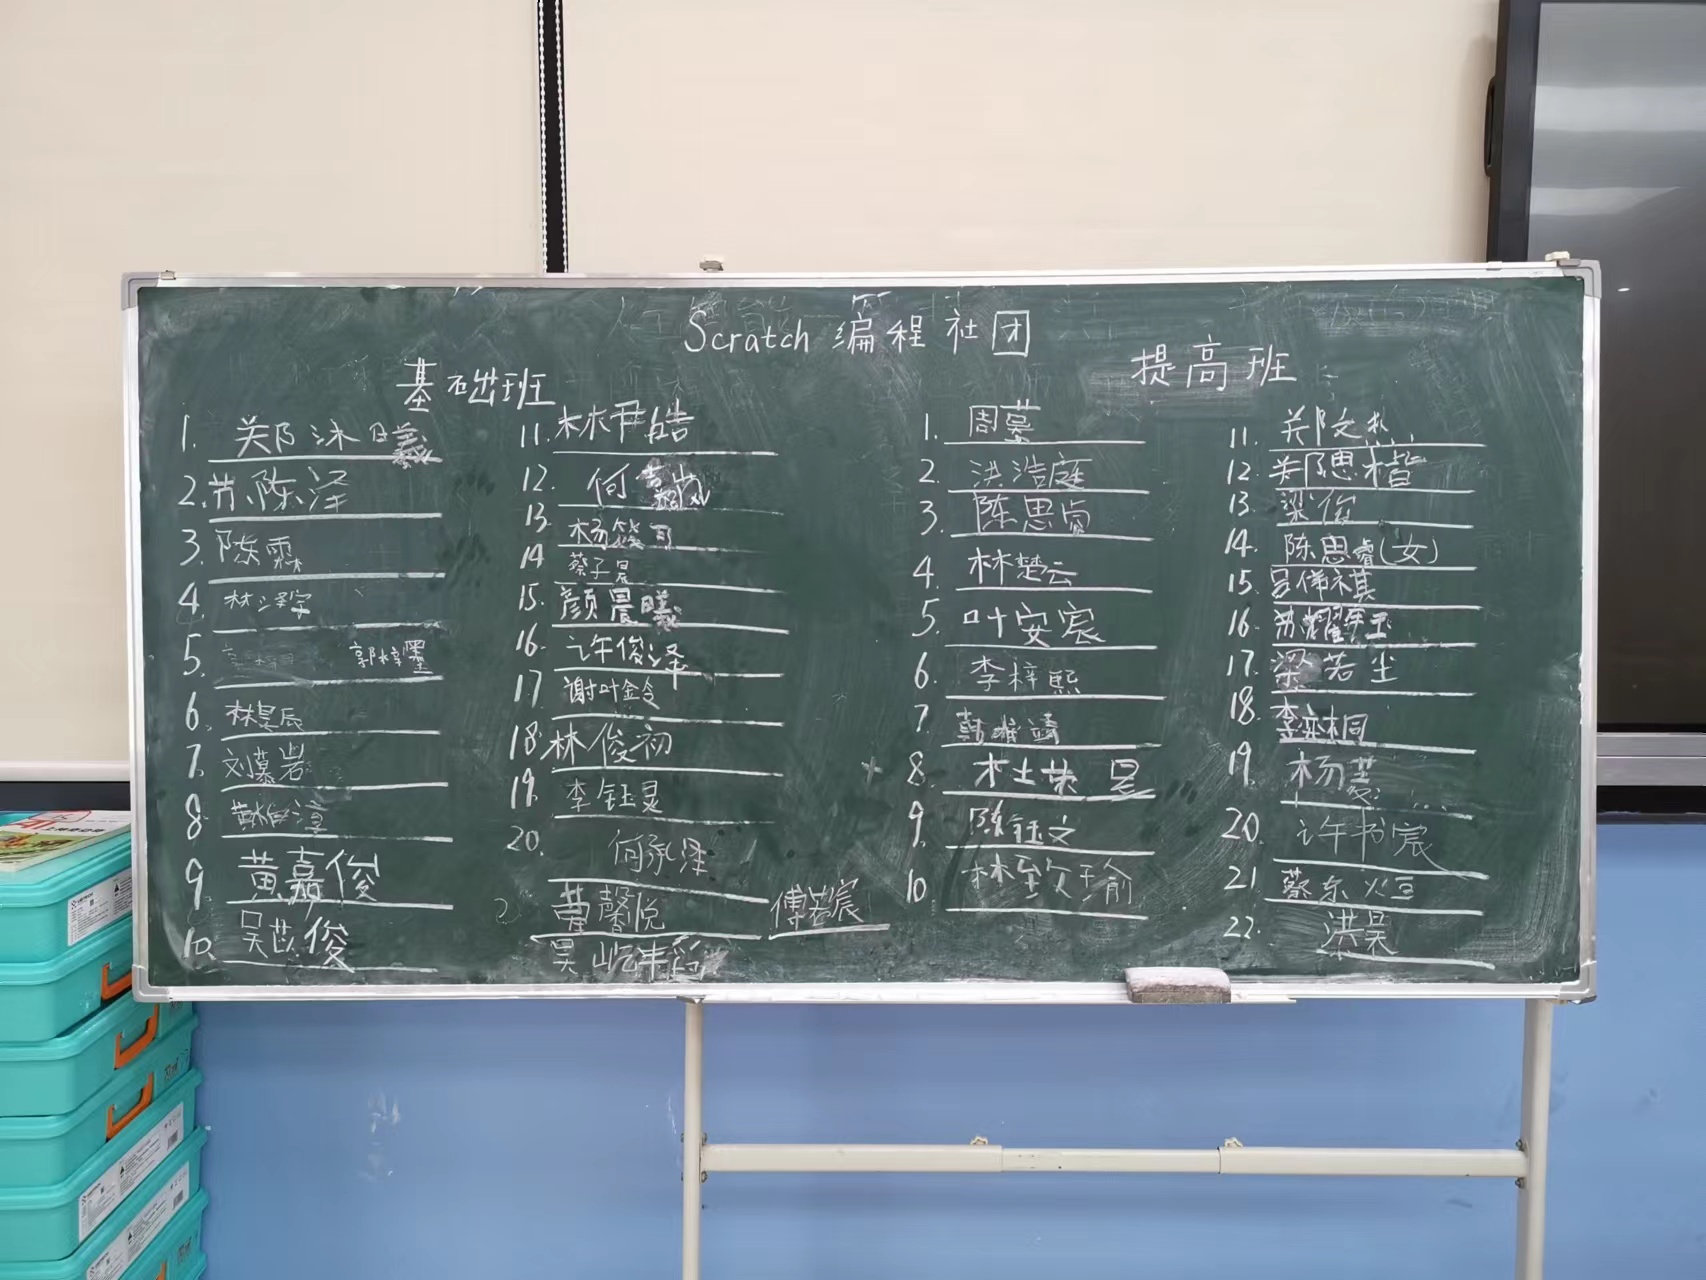 Scratch 编程社团
基础班
1. 郑沐曦
2. 苏陈泽
3. 陈霖
4. 林泽宇
5. 郭梓墨
6. 林昊辰
7. 刘慕岩
8. 黄梓淳
9. 黄嘉俊
10. 吴苡俊
11. 林尹皓
12. 何嘉岚
13. 杨筱可
14 蔡子晨
15. 颜晨曦
16 许俊泽
17 谢叶铃
18 林俊初
19. 李钰灵
20. 何承泽
曹馨悦 傅若宸
吴屹丰
提高班
1. 周慕
2. 洪浩庭
3. 陈思贞
4. 林楚云
5. 叶安宸
6 李梓熙
7 韩雅靖
8. 杜荣昱
9. 陈钰文
10 林致瑜
11. 郑文
12. 郑思楷
13. 梁俊
14. 陈思睿(女)
15. 吕伟祺
16. 苏耀
17. 梁若尘
18. 李奕桐
19. 杨
20. 许书宸
21. 蔡东烜
22. 洪昊